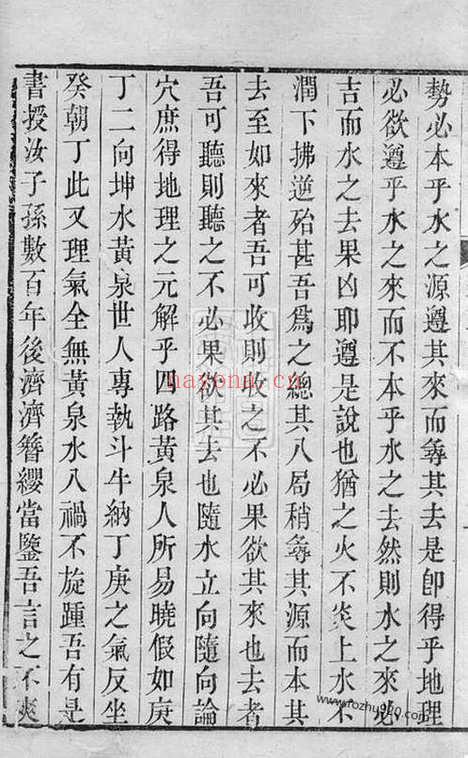 勢必本乎水之源遵其來而尋其去是卽得乎地理
必欲遵乎水之來而不本乎水之去然則水之來必
吉而水之去果凶耶遵是說也猶之火不炎上水不
潤下拂逆殆甚吾爲之總其八局稍尋其源而本其
去至如來者吾可收則收之不必果欲其來也去者
吾可聽則聽之不必果欲其去也隨水立向隨向論
穴庶得地理之元解乎四路黃泉人所易曉假如庚
丁二向坤水黃泉世人專執斗牛納丁庚之氣反坐
癸朝丁此又理氣全無黃泉水入禍不旋踵吾有是
書授汝子孫數百年後濟濟簪纓當鑒吾言之不爽
nayona.cn
www.rozhu920.com